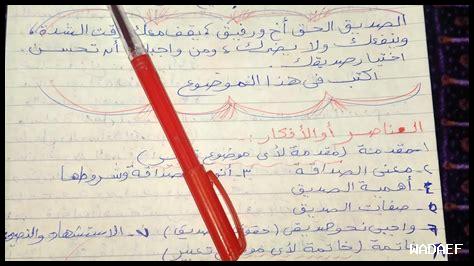 الصديق الحق أخ ورفيق، يقف معك وقت الشدة،
وينفعك ولا يضرك، ومن واجبك أن تحسن
اختيار صديقك.
اكتب في هذا الموضوع
العناصر أو الأفكار:
١- مقدمة (مقدمة لأي موضوع
٢- معنى الصداقة ٣- الصداقة وشروطها
٤- أهمية الصديق
٥- صفات الصديق
٦- واجبي نحو صديقي (حقوق الصديق) ٧- الاستشهاد
خاتمة (خاتمة لأي تعبير)
WADAEF